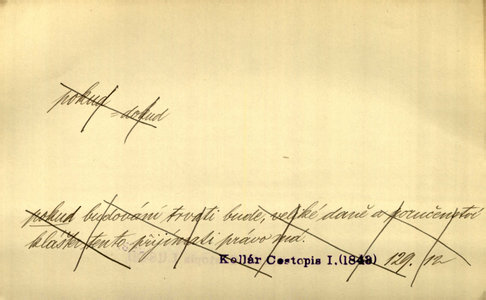 pokud = dokud
pokud budování trvati bude, veliké daně a poručenství
klášter tento přijímati právo má.
Kollár Cestopis I.(1843) 129. 12